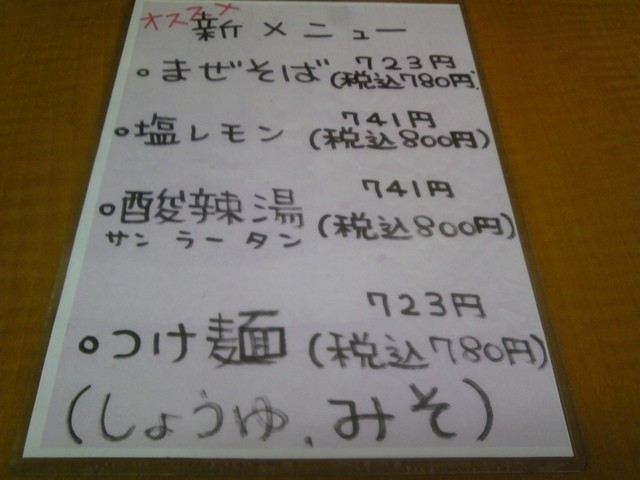 オススメ
新メニュー
。まぜそば 723円
(税込780円)
。塩レモン 741円
(税込800円)
。酸辣湯 741円
サンラータン (税込800円)
。つけ麺 723円
(税込780円)
(しょうゆ、みそ)